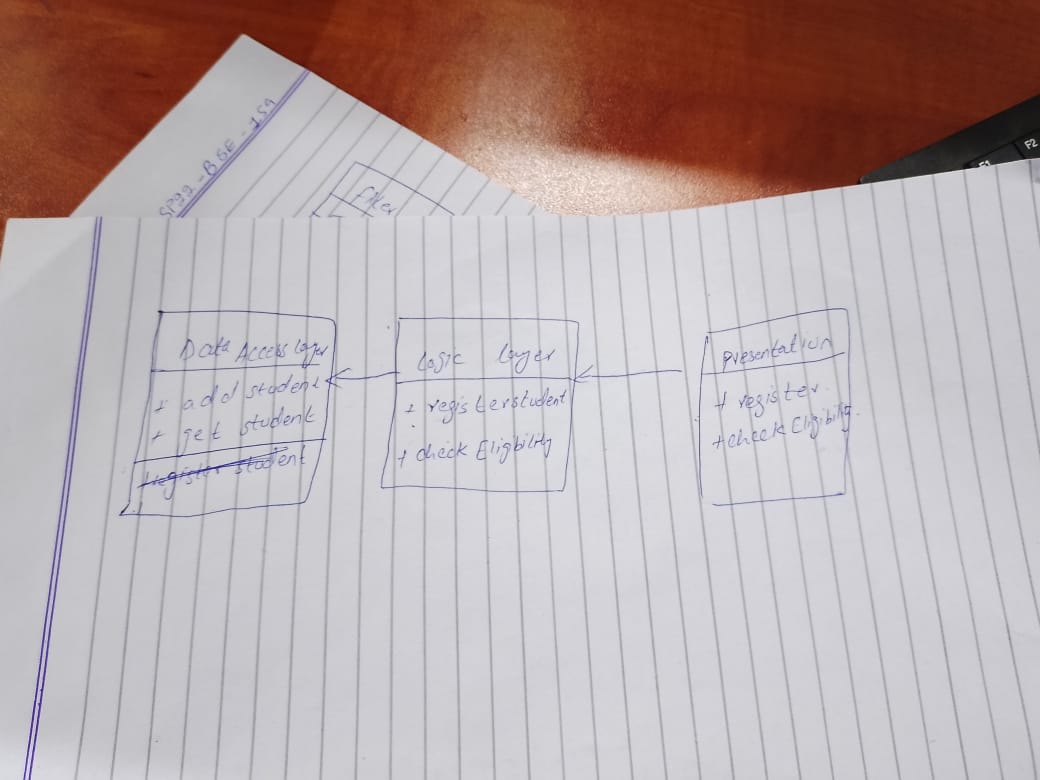 SP22-BSE-159
filter
Data Access layer
+ add student
+ get student
register student
Logic layer
+ registerstudent
+ check Eligbility
Presentation
+ register
+ check Eligibility
F1
F2